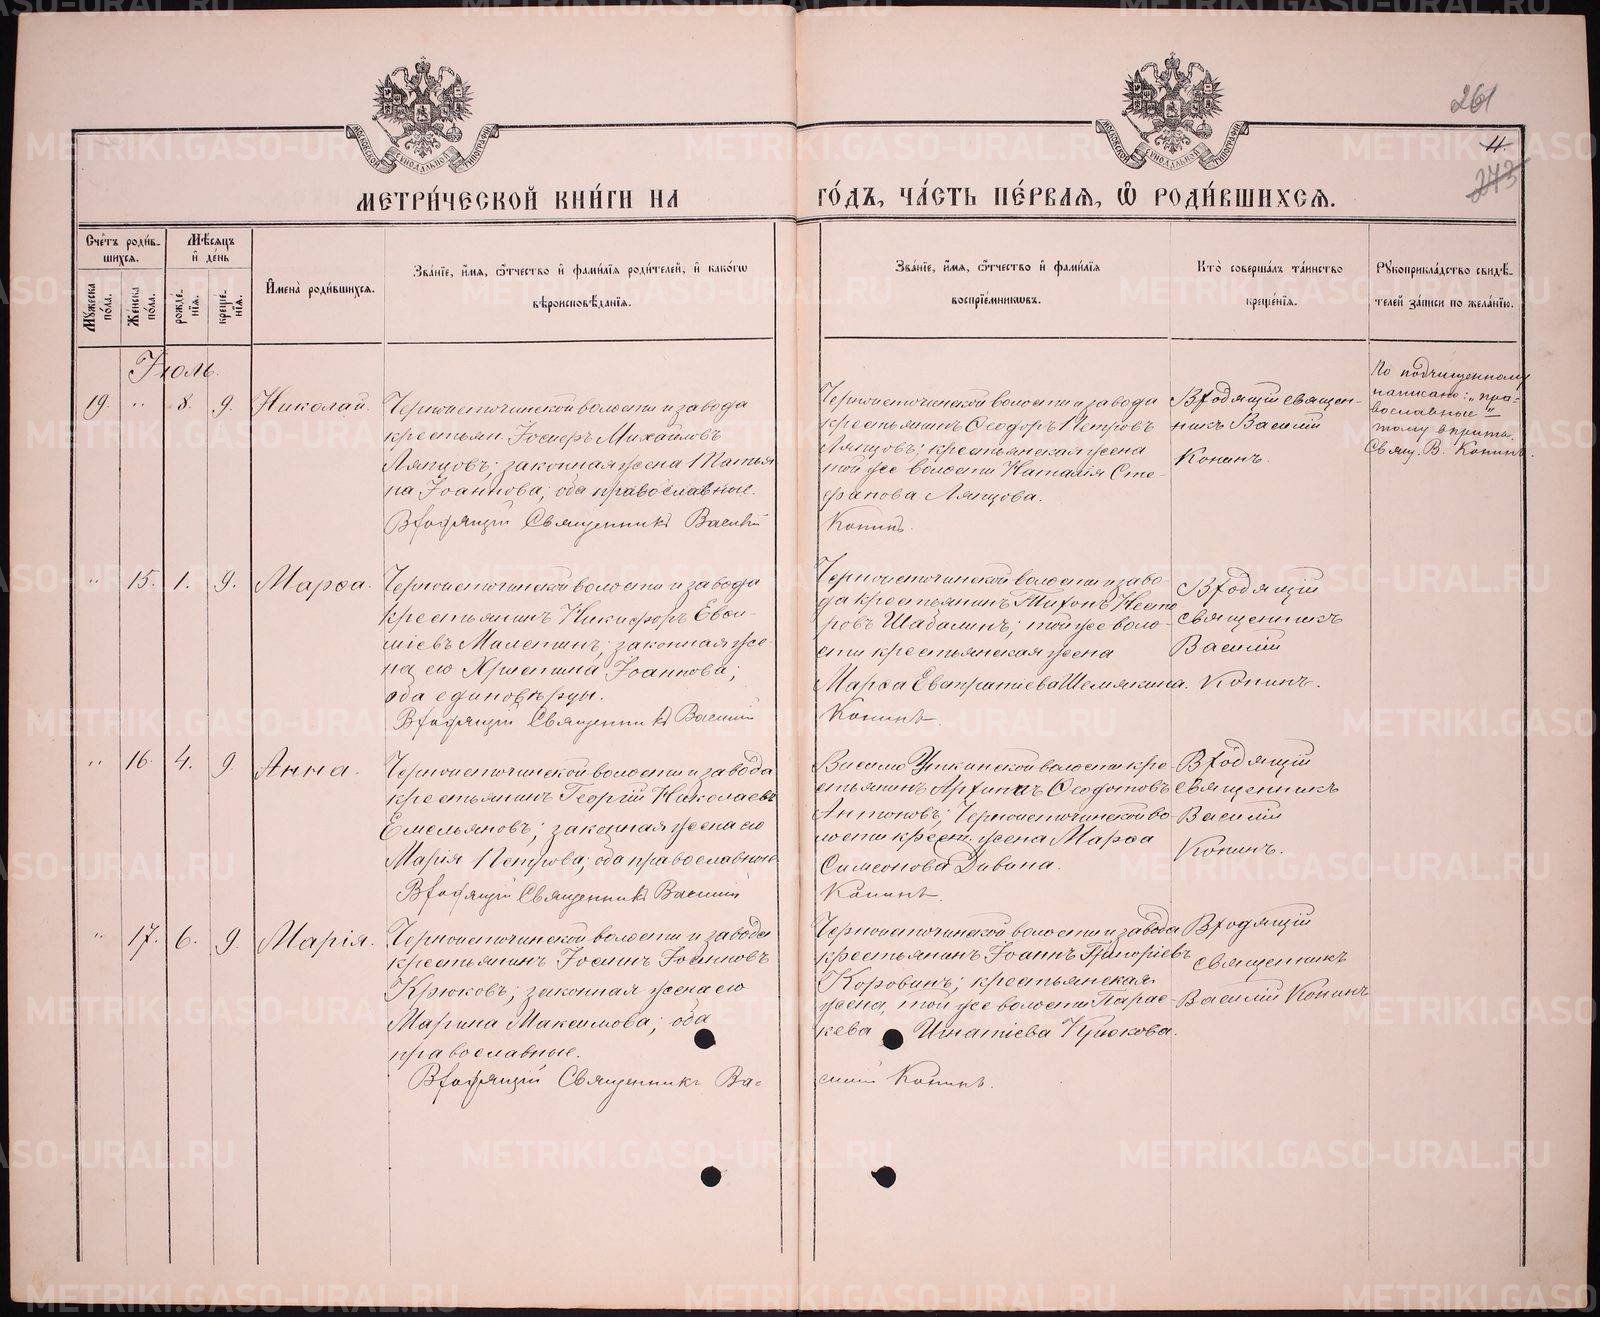 261
11.
273
МЕТРИ́ЧЕСКОЙ КНИ́ГИ НА ГО́ДЪ, ЧА́СТЬ ПЕ́РВАЯ, Ѽ РОДИ́ВШИХСЯ.
Сче́тъ роди́в-
шихся.
Му́жеска по́ла.
Же́нска по́ла.
Мѣ́сяцъ
и́ де́нь
рожде́-
нія.
креще́-
нія.
И҆мена̀ роди́вшихся.
Зва́нїе, и҆́мя, ѻ҆́тчество и҆ фами́лїя роди́телей, и҆ како́гѡ
вѣроисповѣ́данїя.
Зва́нїе, и҆́мя, ѻ҆́тчество и҆ фами́лїя
воспрїе́мниковъ.
Кто̀ соверша́лъ та́инство
креще́нїя.
Рꙋкоприкла́дство свидѣ́-
телей за́писи по жела́нїю.
Іюль.
19. „ 8. 9. Николай.
Черноисточинской волости и завода
крестьян. Іосифъ Михаиловъ
Ляпцовъ; законная жена Татья
на Іоаннова; оба православные.
Входящій Священникъ Василій
Черноисточинской волости и завода
крестьянинъ Ѳеодоръ Петровъ
Ляпцовъ; крестьянская жена
той же волости Наталія Сте-
фанова Ляпцова.
Конинъ.
Входящій священ-
никъ Василій
Конинъ.
По подчищенному
написано: „пра-
вославные"
тому в прит.
Свящ. В. Конинъ.
„ 15. 1. 9. Марѳа.
Черноисточинской волости и завода
крестьянинъ Никифоръ Евѳи-
міевъ Малетинъ; законная же
на его Христина Іоаннова;
оба единовѣрцы.
Входящій Священникъ Василій
Черноисточинской волости и заво-
да крестьянинъ Тихонъ Несто
ровъ Шабалинъ; той же воло-
сти крестьянская жена
Марѳа Евстратіева Шемякина.
Конинъ.
Входящій
священникъ
Василій
Конинъ.
„ 16. 4. 9. Анна.
Черноисточинской волости и завода
крестьянинъ Георгій Николаевъ
Емельяновъ; законная жена его
Марія Петрова; оба православные
Входящій Священникъ Василій
Василио Уткинской волости кре-
стьянинъ Ѳеодотовъ
Антоновъ; Черноисточинской во-
лости крест. жена Марѳа
Симеонова Дивина.
Конинъ.
Входящій
Священникъ
Василій
Конинъ.
„ 17. 6. 9. Марія.
Черноисточинской волости и завода
крестьянинъ
Крюковъ; законная жена его
Марина Максимова; оба
православные.
Входящій Священникъ Ва-
Черноисточинской волости и завода
крестьянинъ Іоаннъ Григоріевъ
Коровинъ; крестьянская
жена, той же волости Парас-
кева Игнатіева Крюкова.
силій Конинъ.
Входящій
священникъ
Василій Конинъ